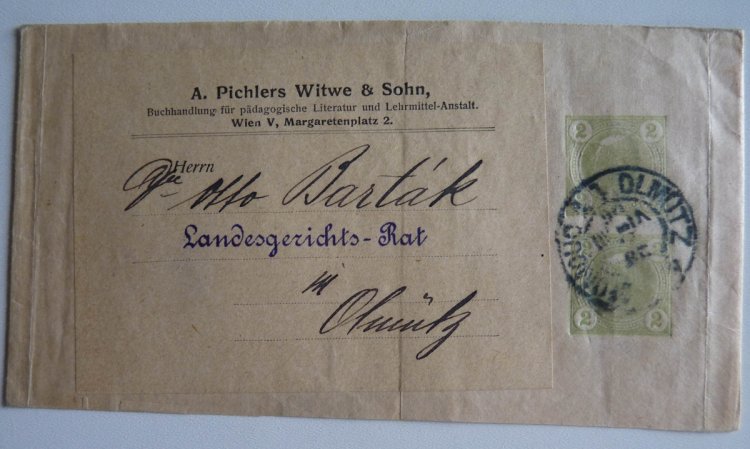 A. Pichlers Witwe & Sohn,
Buchhandlung für pädagogische Literatur und Lehrmittel-Anstalt.
Wien V, Margaretenplatz 2.
Herrn
Otto Barták
Landesgerichts-Rat
in
Olmütz
2 2
OLMÜTZ
2 2